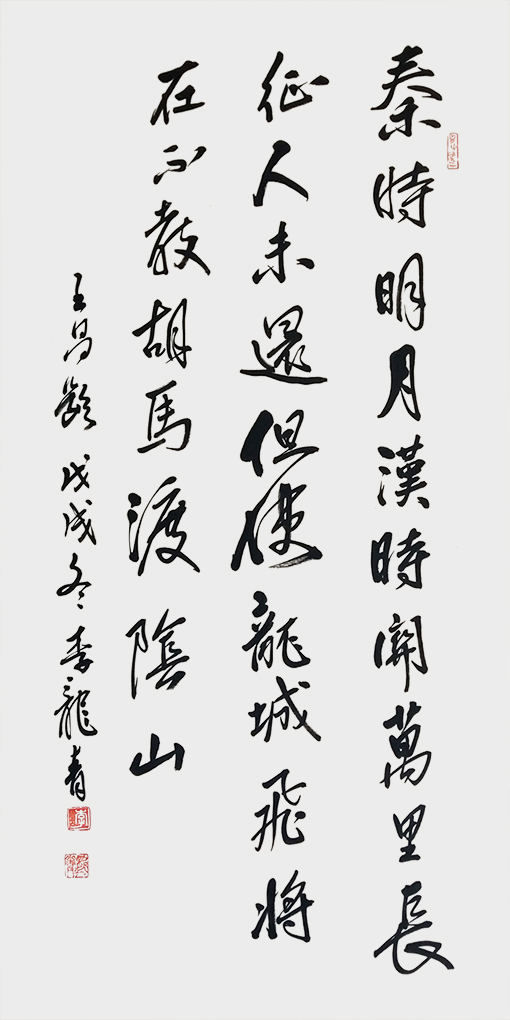 秦時明月漢時關萬里長
征人未還但使龍城飛將
在不教胡馬渡陰山
王昌齡 戊戌冬李龍青